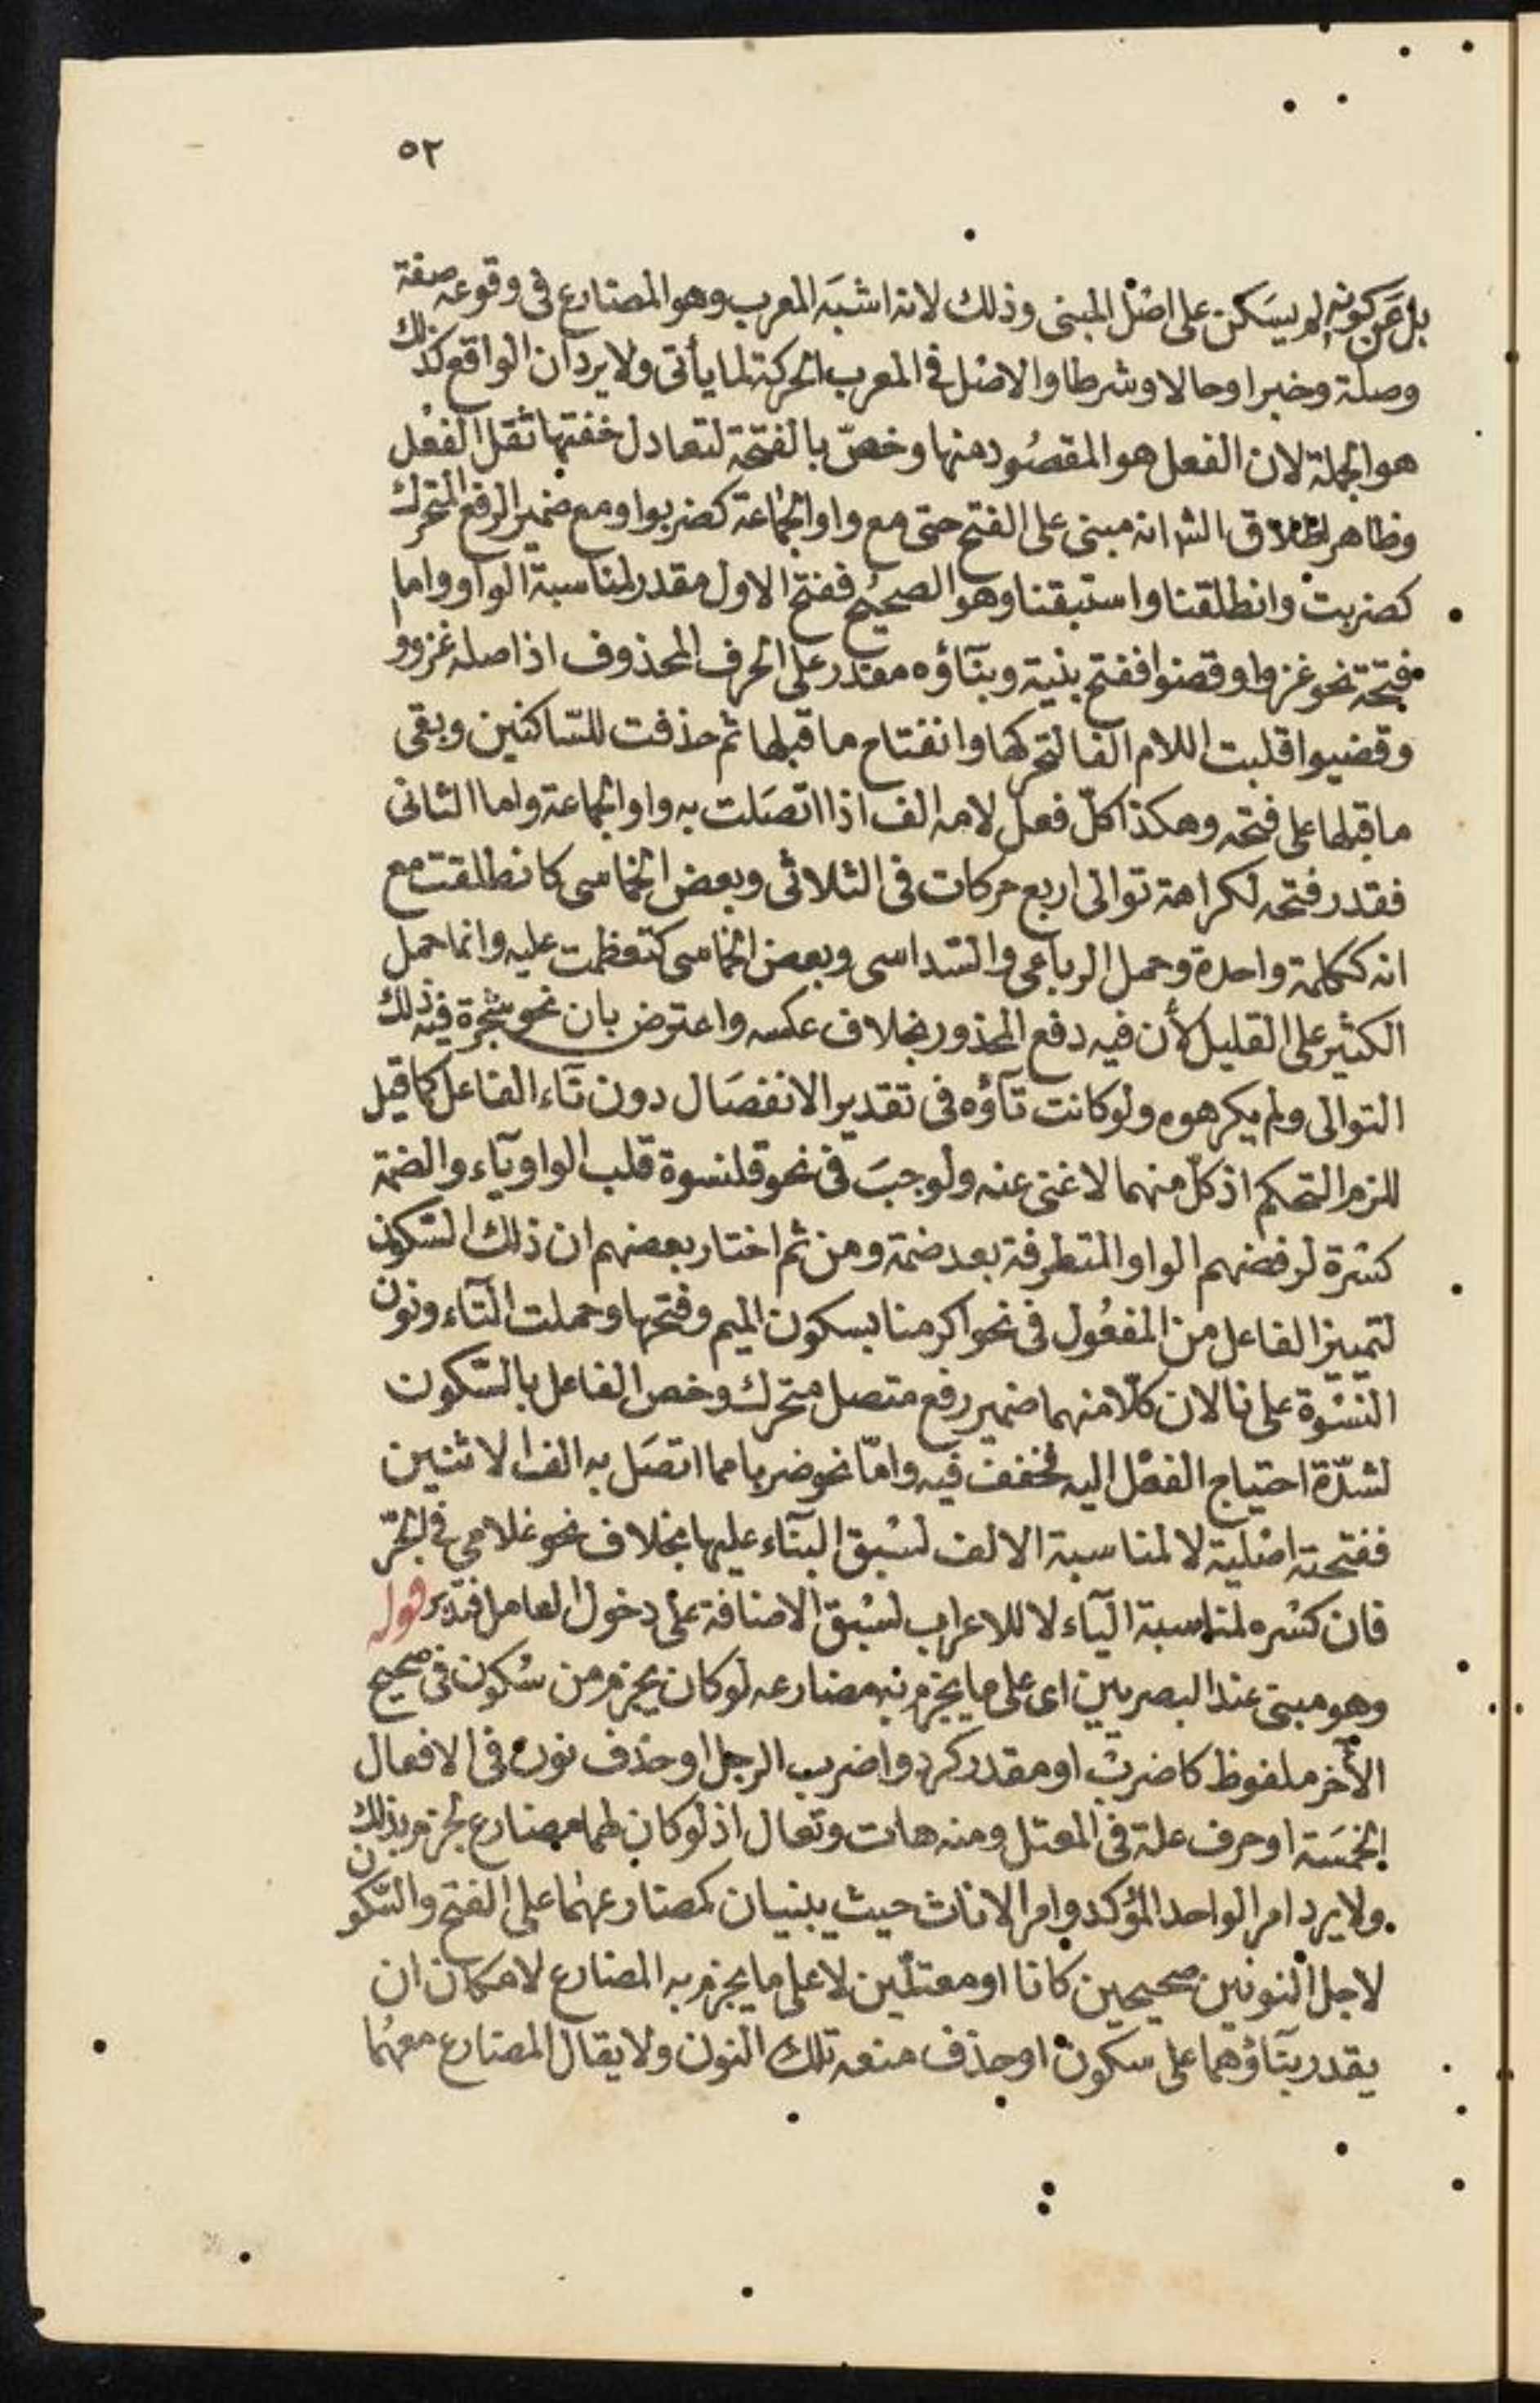 ٥٢
بل عن كونه لم يسكن على اصل المبنى وذلك لانه اشبه المعرب وهو المضارع فى وقوعه صفة
وصلة وخبرا وحالا وشرطا والاصل فى المعرب الحركة لما يأتى ولا يرد ان الواقع كذلك
هو الجملة لان الفعل هو المقصود منها وخصّ بالفتحة لتعادل خفتها ثقل الفعل
وظاهر اطلاق الش انه مبنى على الفتح حتى مع واو الجماعة كضربوا ومع ضمير الرفع المتحرك
كضربت وانطلقنا واستبقنا وهو الصحيح ففتح الاول مقدر لمناسبة الواو واما
فتحة نحو غزوا وقضوا ففتح بنية وبنآؤه مقدر على الحرف المحذوف اذ اصله غزووا
وقضيوا قلبت اللام الفا لتحركها وانفتاح ما قبلها ثم حذفت للسّاكنين وبقى
ما قبلها على فتحه وهكذا كلّ فعل لامه الف اذا اتصلت به واو الجماعة واما الثانى
فقدر فتحه لكراهة توالى اربع حركات فى الثلاثى وبعض الخماسى كانطلقت مع
انه ككلمة واحدة وحمل الرباعى والسّداسى وبعض الخماسى كتعظمت عليه وانما حمل
الكثير على القليل لأن فيه دفع المحذور بخلاف عكسه واعترض بان نحو شجرة فيه ذلك
التوالى ولم يكرهوه ولو كانت تآؤه فى تقدير الانفصال دون تآء الفاعل كما قيل
للزم التحكم اذ كلّ منهما لا غنى عنه ولوجبَ فى نحو قلنسوة قلب الواو يآء والضمة
كسْرة لرفضهم الواو المتطرفة بعد ضمة ومن ثم اختار بعضهم ان ذلك السّكون
لتمييز الفاعل من المفعُول فى نحو اكرمنا بسكون الميم وفتحها وحملت التآء ونون
النسْوة على نا لان كلّا منهما ضمير رفع متصل متحرك وخص الفاعل بالسّكون
لشدّة احتياج الفعْل اليه فخفف فيه وامّا نحو ضربا مما اتصَل به الف الاثنين
ففتحته اصْلية لا لمناسبة الالف لسْبق البنآء عليها بخلاف نحو غلامي فى الجرّ
فان كسْره لمناسبة اليآء لا للاعراب لسْبق الاضافة على دخول العامل فتدبر قوله
وهو مبنى عند البصريين اى على ما يجزم به مضارعه لو كان يجزم من سُكون فى صحيح
الآخر ملفوظ كاضربْ او مقدر كردّ واضرب الرجل او حذف نون فى الافعال
الخمسَة او حرف علة فى المعتل ومنه هات وتعال اذ لو كان لهما مضارع لجزم بذلك
ولا يرد امر الواحد المؤكد وامر الاناث حيث يبنيان كمضارعهمَا على الفتح والسّكون
لاجل النونين صحيحين كانا او معتلّين لا على ما يجزم به المضارع لامكان ان
يقدر بنآؤهما على سكون او حذف منعه تلك النون ولا يقال المضارع معهُما